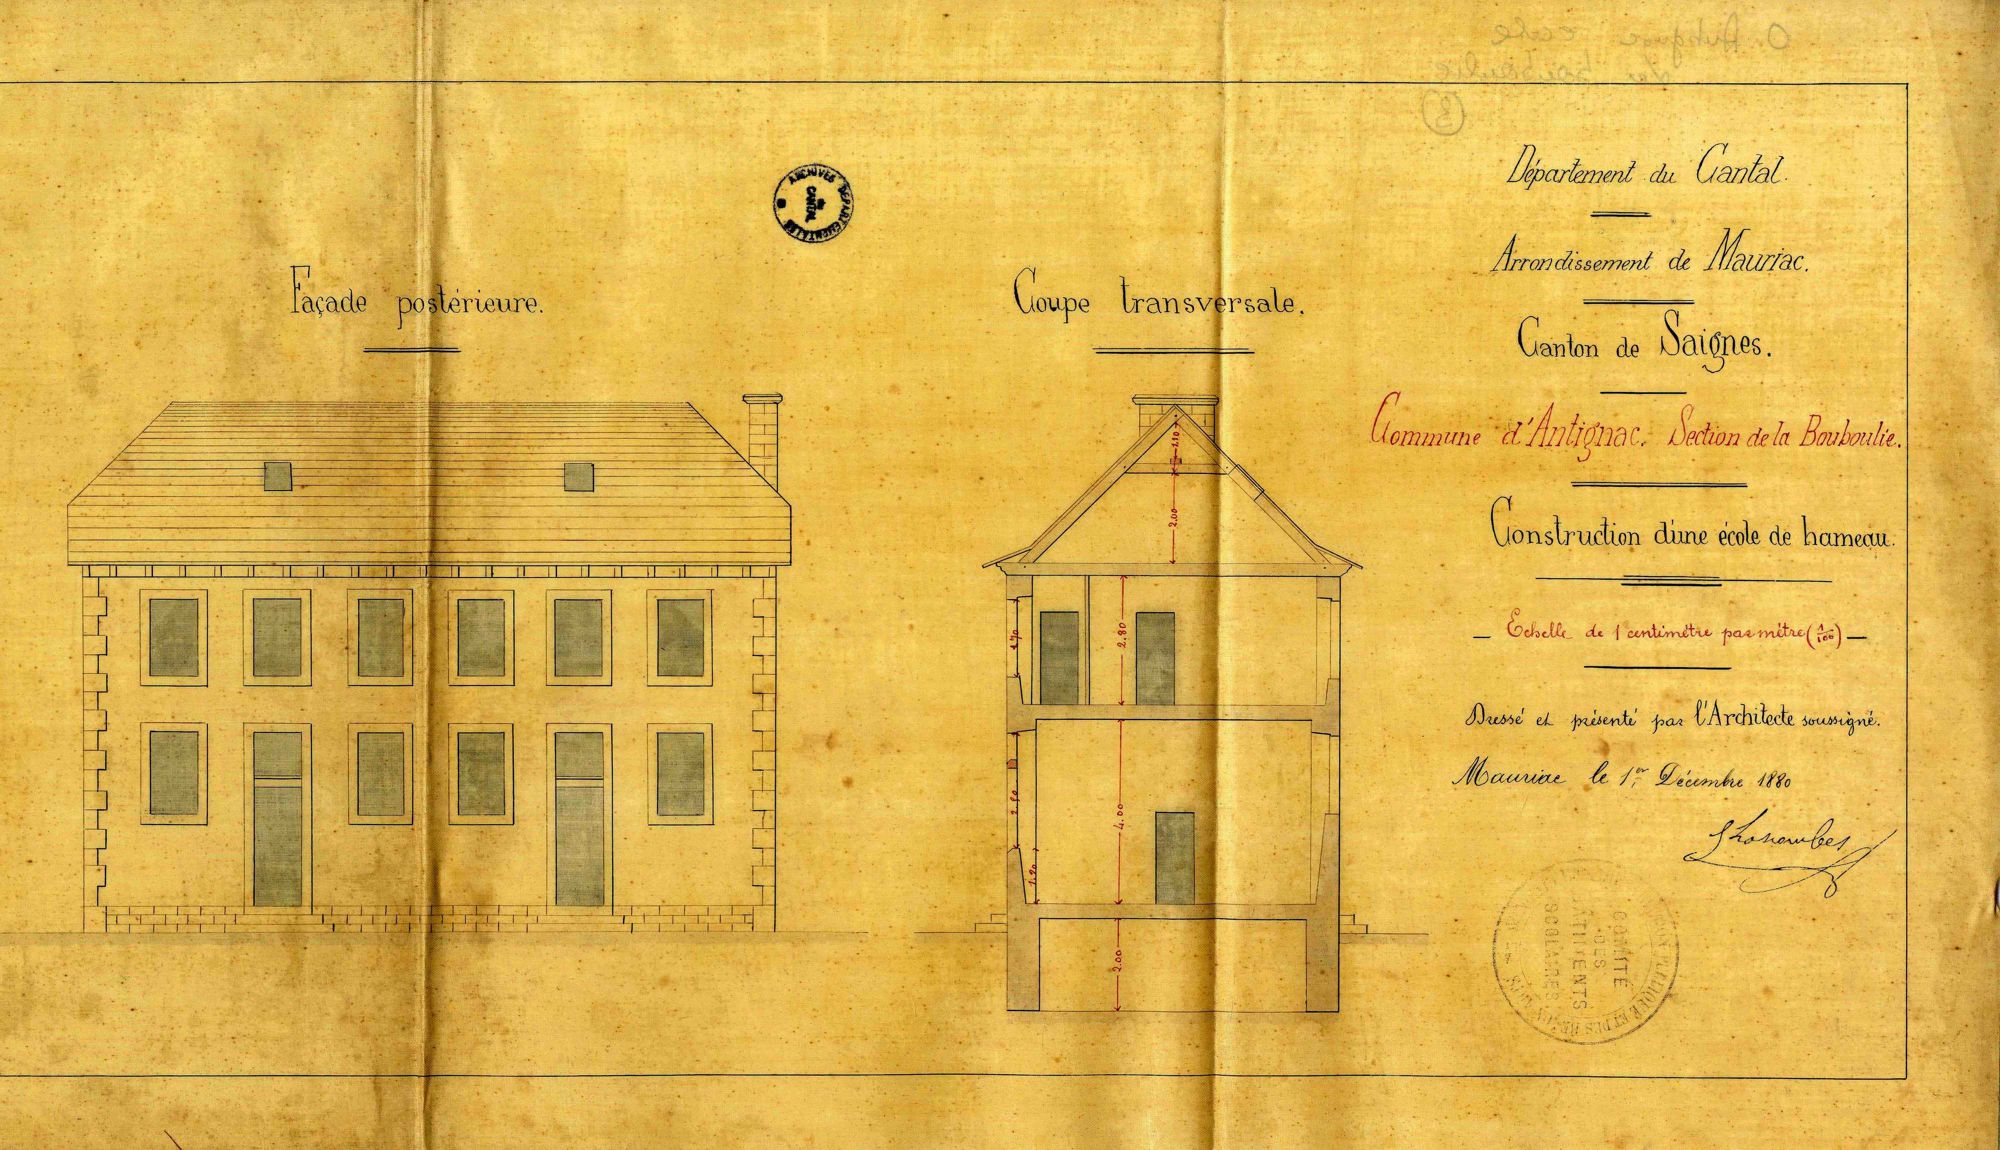 Département du Cantal.
Arrondissement de Mauriac.
Canton de Saignes.
Commune d'Antignac. Section de la Bouboulie.
Construction d'une école de hameau.
Echelle de 1 centimètre par mètre (1/100)
Dressé et présenté par l'Architecte soussigné.
Mauriac le 1er Décembre 1880
Façade postérieure.
Coupe transversale.
ARCHIVES DEPARTEMENTALES
CANTAL
1.10
2.00
1.70
2.80
2.50
4.00
1.20
2.00
COMITÉ
DES
BATIMENTS
SCOLAIRES